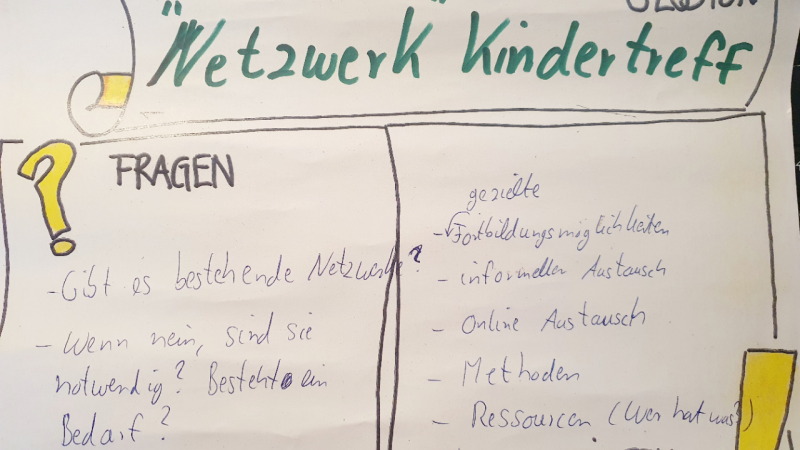 SESSION
"Netzwerk" Kindertreff
FRAGEN
- Gibt es bestehende Netzwerke?
- Wenn nein, sind sie
notwendig? Besteht ein
Bedarf?
gezielte
- Fortbildungsmöglichkeiten
- informeller Austausch
- Online Austausch
- Methoden
- Ressourcen (Wer hat was?)